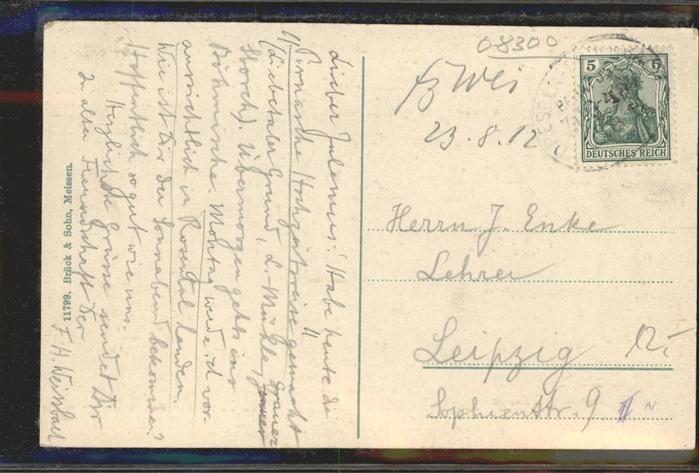 08300
23. 8. 12
5 5
DEUTSCHES REICH
DRESDEN
Herrn J. Enke
Lehrer
Leipzig
Sophienstr. 9 II
Lieber Julemus! Habe heute die
"Pirnaische Hochzeitsreise" gemacht
(Liebetaler Grund, L. Mühle, Grauer
Storch). Übermorgen gehts ins
Böhmische. Montag werde ich vor-
aussichtlich in Rosental landen.
Wie ist Dir der Sonnabend bekommen?
Hoffentlich so gut wie uns.
Herzlichste Grüsse sendet Dir
In aller Freundschaft Der
F. H. Weissbach
11799. Brück & Sohn, Meissen.